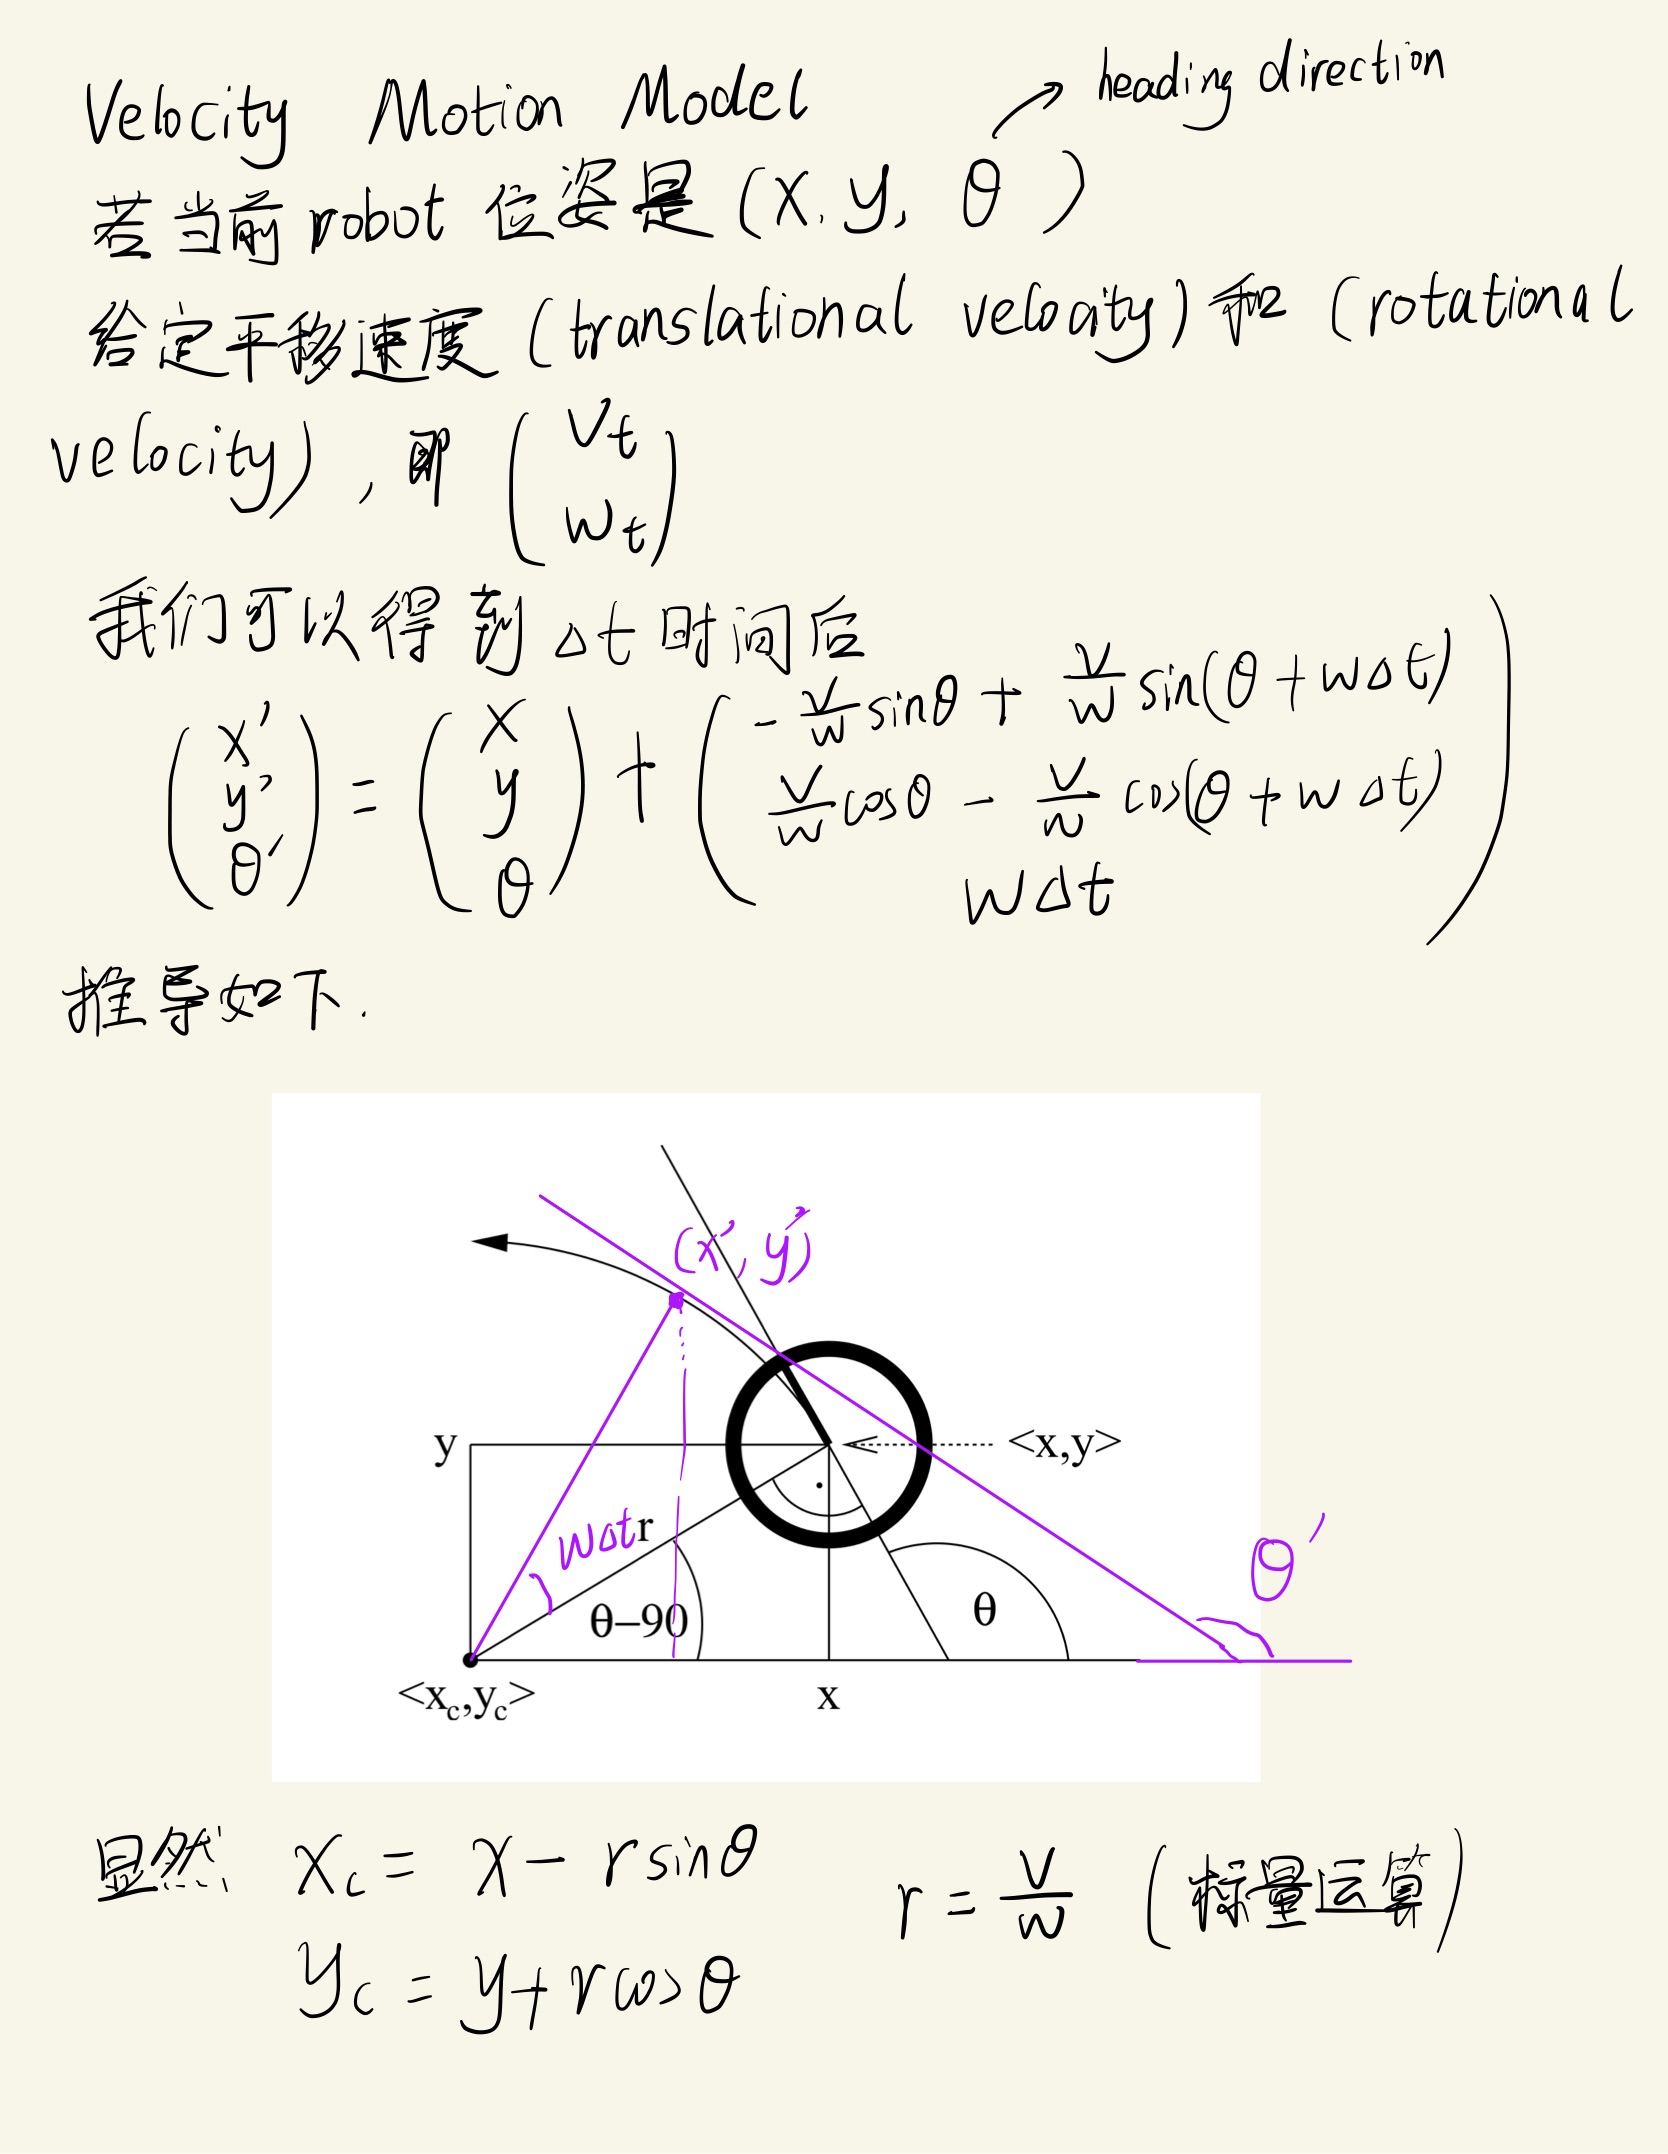 Velocity Motion Model
heading direction
若当前robot 位姿是 (x, y, θ )
给定平移速度 (translational velocity) 和 (rotational
velocity) , 即 ( Vt
wt )
我们可以得到 Δt 时间后
( x'
y'
θ' ) = ( x
y
θ ) + ( - v/w sinθ + v/w sin(θ + wΔt)
v/w cosθ - v/w cos(θ + wΔt)
wΔt )
推导如下.
(x', y')
y
<x,y>
wΔt
r
θ'
θ–90
θ
<xc,yc>
x
显然 xc = x - r sinθ
r = v/w (标量运算)
yc = y + r cosθ